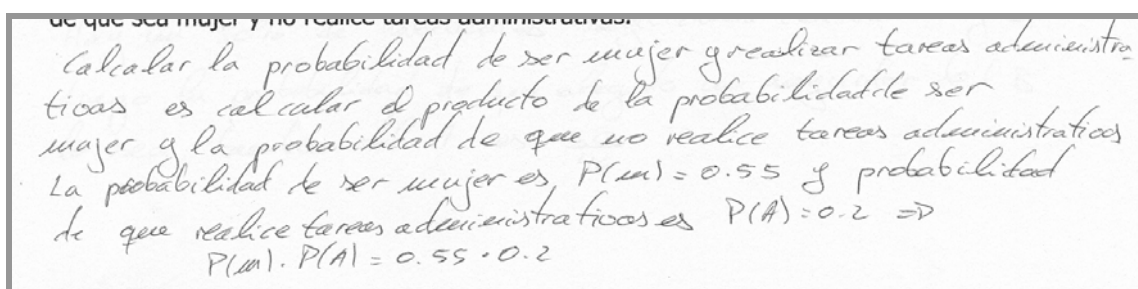 de que sea mujer y no realice tareas administrativas.
Calcular la probabilidad de ser mujer y realizar tareas administra
tivas es calcular el producto de la probabilidad de ser
mujer y la probabilidad de que no realice tareas administrativas
La probabilidad de ser mujer es P(m) = 0.55 y probabilidad
de que realice tareas administrativas es P(A) = 0.2 =>
P(m). P(A) = 0.55 . 0.2